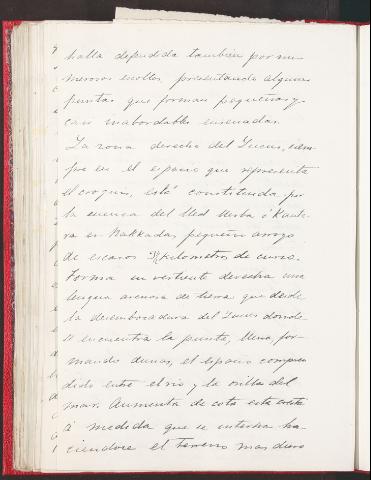 halla defendida tambien por nu-
merosos escollos presentando algunas
puntas que forman pequeñas y
casi inabordables ensenadas.
La zona derecha del Lucus, siem-
pre en el espacio que representa
el croquis, está constituida por
la cuenca del Ued
ra es Nakkada, pequeño arroyo
de escasos kilometros de curso.
Forma su vertiente derecha una
lengua arenosa de tierra que desde
la desembocadura del Lucus donde
se encuentra la punta, Nena, for-
mando dunas, el espacio compren
dido entre el rio y la orilla del
mar. Aumenta de cota esta cresta
á medida que se interna ha-
ciendose el terreno mas duro